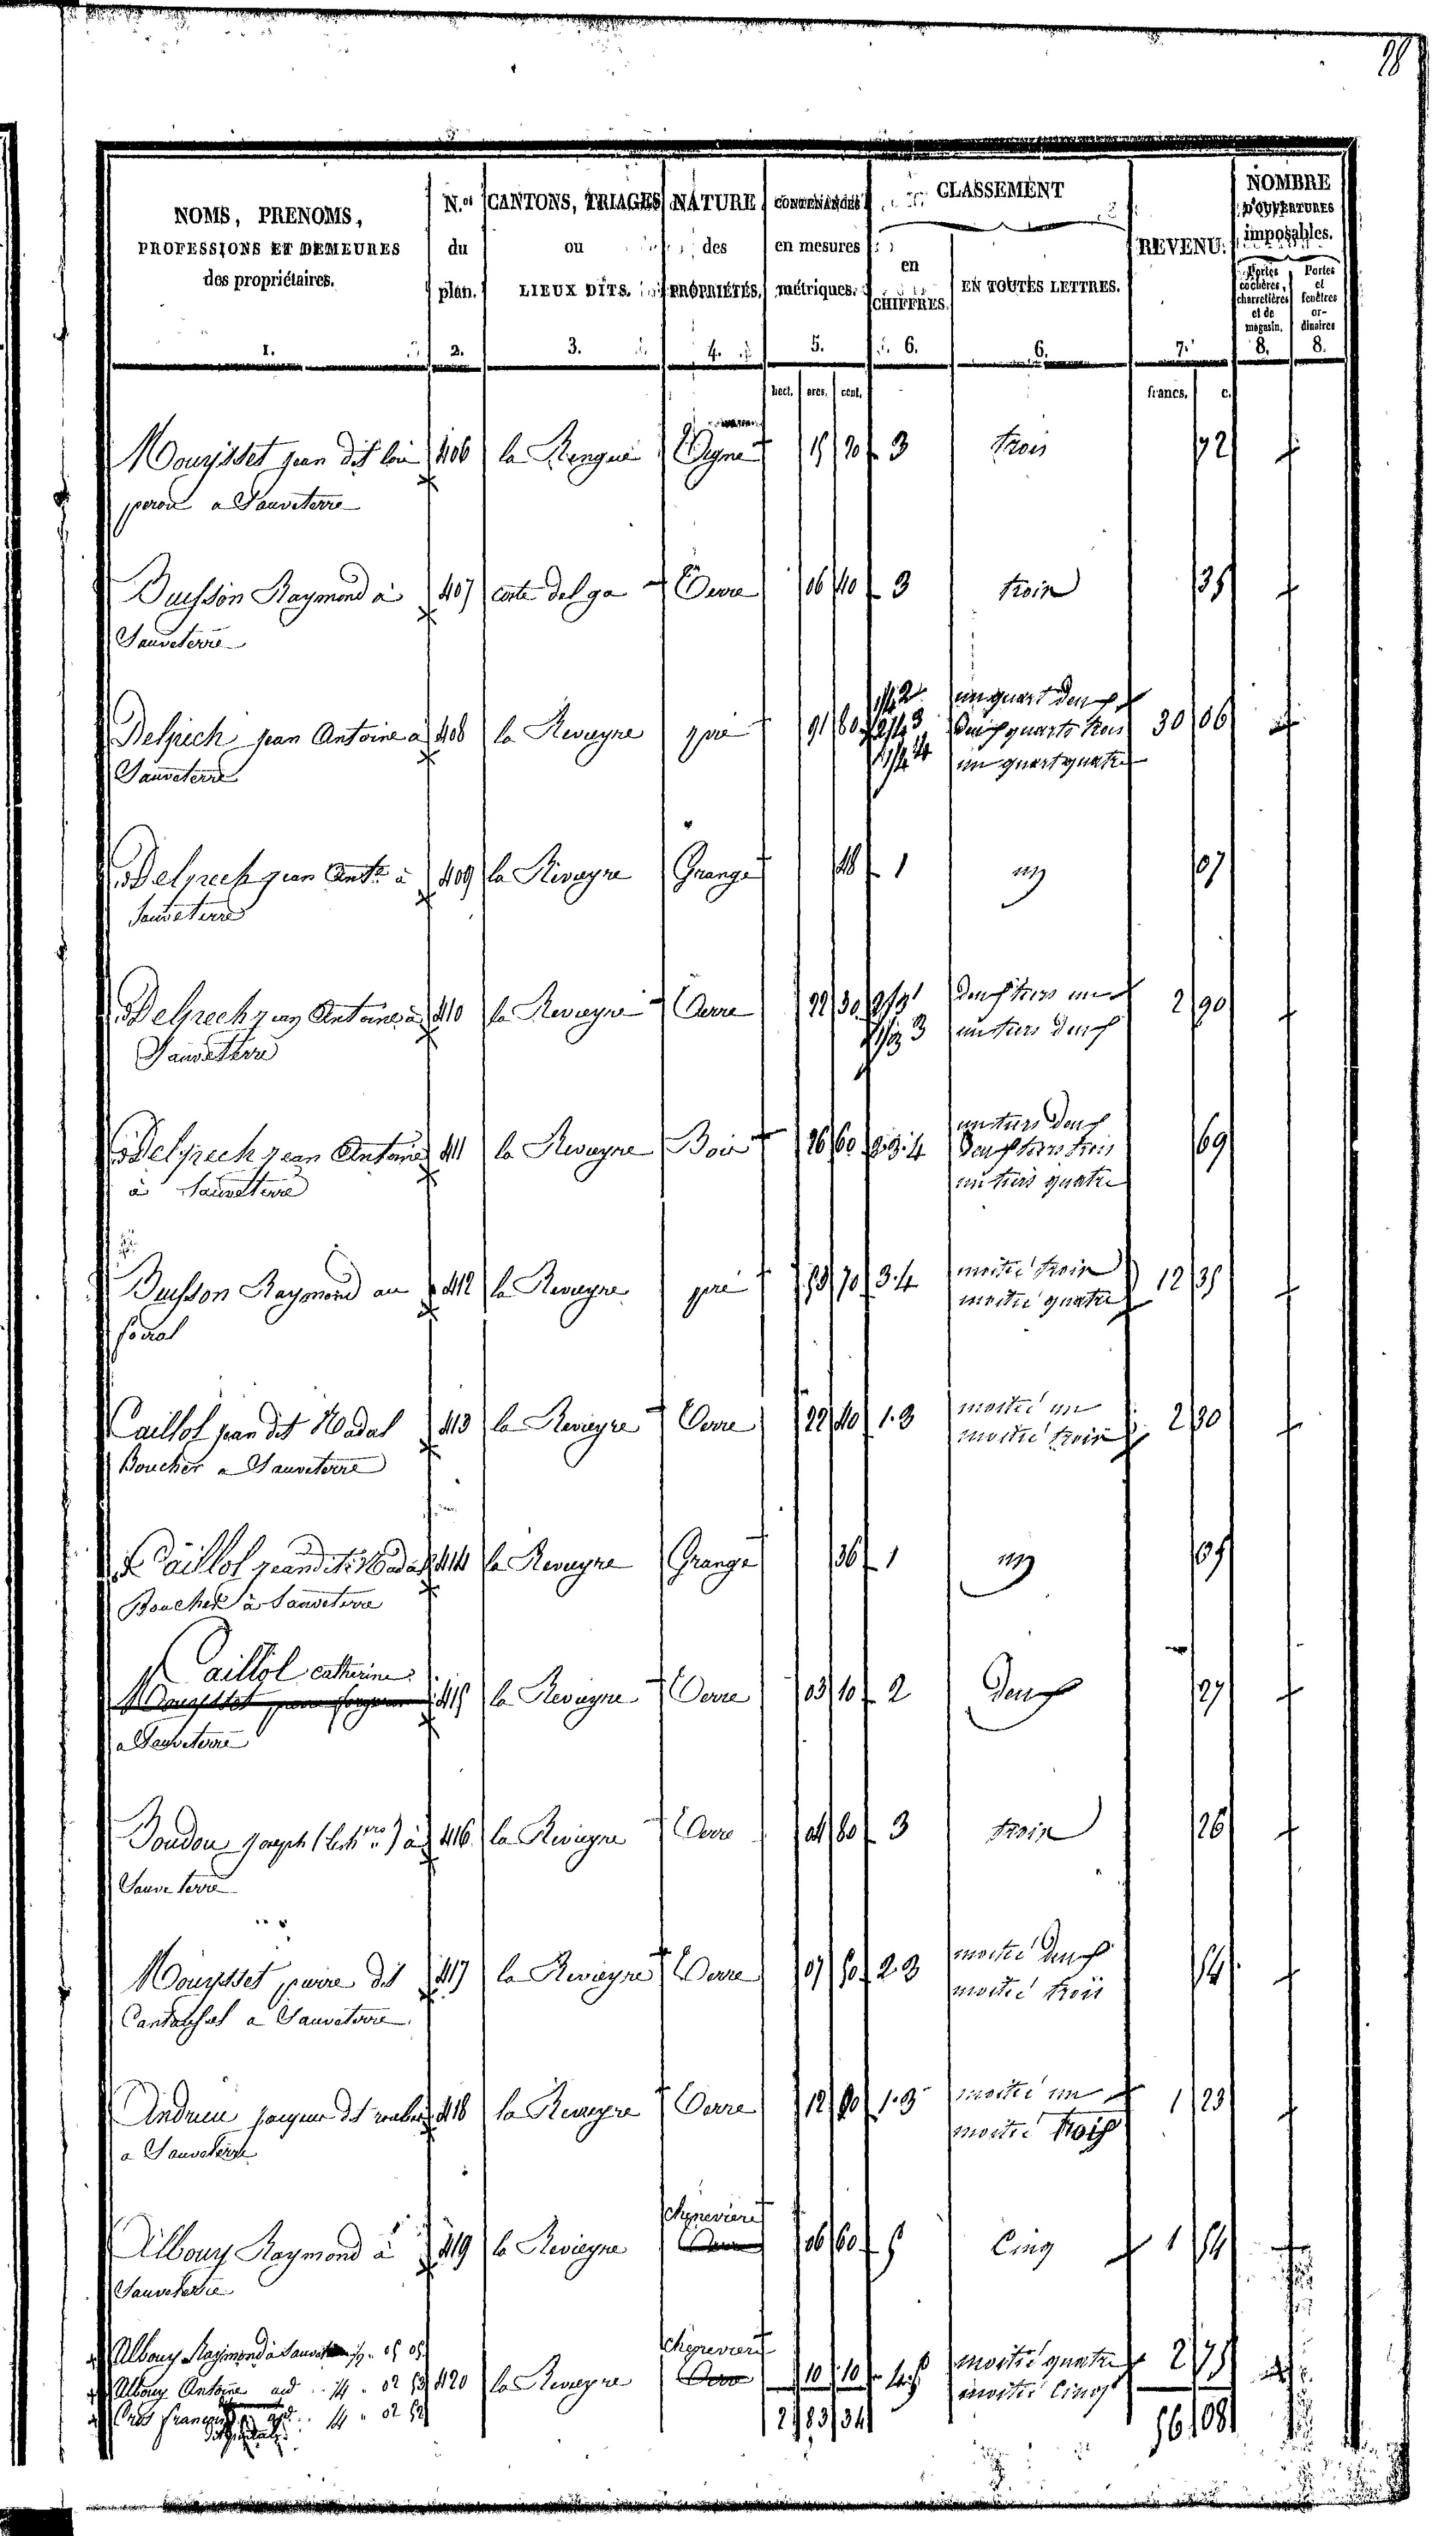 98
NOMS, PRENOMS,
PROFESSIONS ET DEMEURES
des propriétaires.
1.
N.os
du
plan.
2.
CANTONS, TRIAGES
ou
LIEUX DITS.
3.
NATURE
des
PROPRIÉTÉS.
4.
CONTENANCES
en mesures
métriques.
5.
CLASSEMENT
en
CHIFFRES.
6.
EN TOUTES LETTRES.
6.
REVENU.
7.
NOMBRE
D'OUVERTURES
imposables.
Portes cochères, charretières et de magasin.
8.
Portes et fenêtres or-dinaires
8.
hect. ares. cent. francs. c.
Mouysset jean dit 406 la Vigne 15 20 3 trois 72
a Sauveterre
Buisson Raymond à 407 del ga Terre 06 40 3 trois 35
Sauveterre
Delpech jean Antoine a 408 la Revieyre pré 91 80 1/4 2 un quart deux 30 06
2/4 3 deux quarts trois
1/4 4 un quart quatre
Sauveterre
Delpech jean Ant.e à 409 la Rivieyre Grange 48 1 un 07
Sauveterre
Delpech jean Antoine à 410 la Revieyre Terre 22 30 2/3 1 deux tiers un 2 90
1/3 3 un tiers deux
Sauveterre
Delpech jean Antoine 411 la Revieyre Bois 26 60 2.3.4 un tiers deux 69
deux tiers trois
un tiers quatre
à Sauveterre
Buisson Raymond au 412 la Revieyre pré 53 70 3.4 moitié trois 12 35
moitié quatre
foiral
Caillol jean dit Nadal 413 la Revieyre Terre 22 40 1.3 moitié un 2 30
moitié trois
Boucher a Sauveterre
Caillol jean dit Nadal 414 la Revieyre Grange 36 1 un 05
Boucher à Sauveterre
Caillol catherine
Mouysset 415 la Revieyre Terre 03 10 2 Deux 27
a Sauveterre
Boudou joseph à 416 la Revieyre Terre 04 80 3 trois 26
Sauveterre
Mouysset pierre dit 417 la Revieyre Terre 07 50 2 3 moitié deux 54
moitié trois
a Sauveterre
Andrieu jacques dit 418 la Revieyre Terre 12 1.3 moitié un 1 23
moitié trois
a Sauveterre
Chenevière
Albouy Raymond à 419 la Revieyre Terre 06 60 5 Cinq 1 54
Sauveterre
Albouy Raymond à 1/2 " 05 05
Chenevière
Albouy Antoine aud 1/4 " 02 53 420 la Revieyre Terre 10 10 4.5 moitié quatre 2 75
moitié Cinq
Cros françois 1/4 " 02 52
2 83 34 56 08